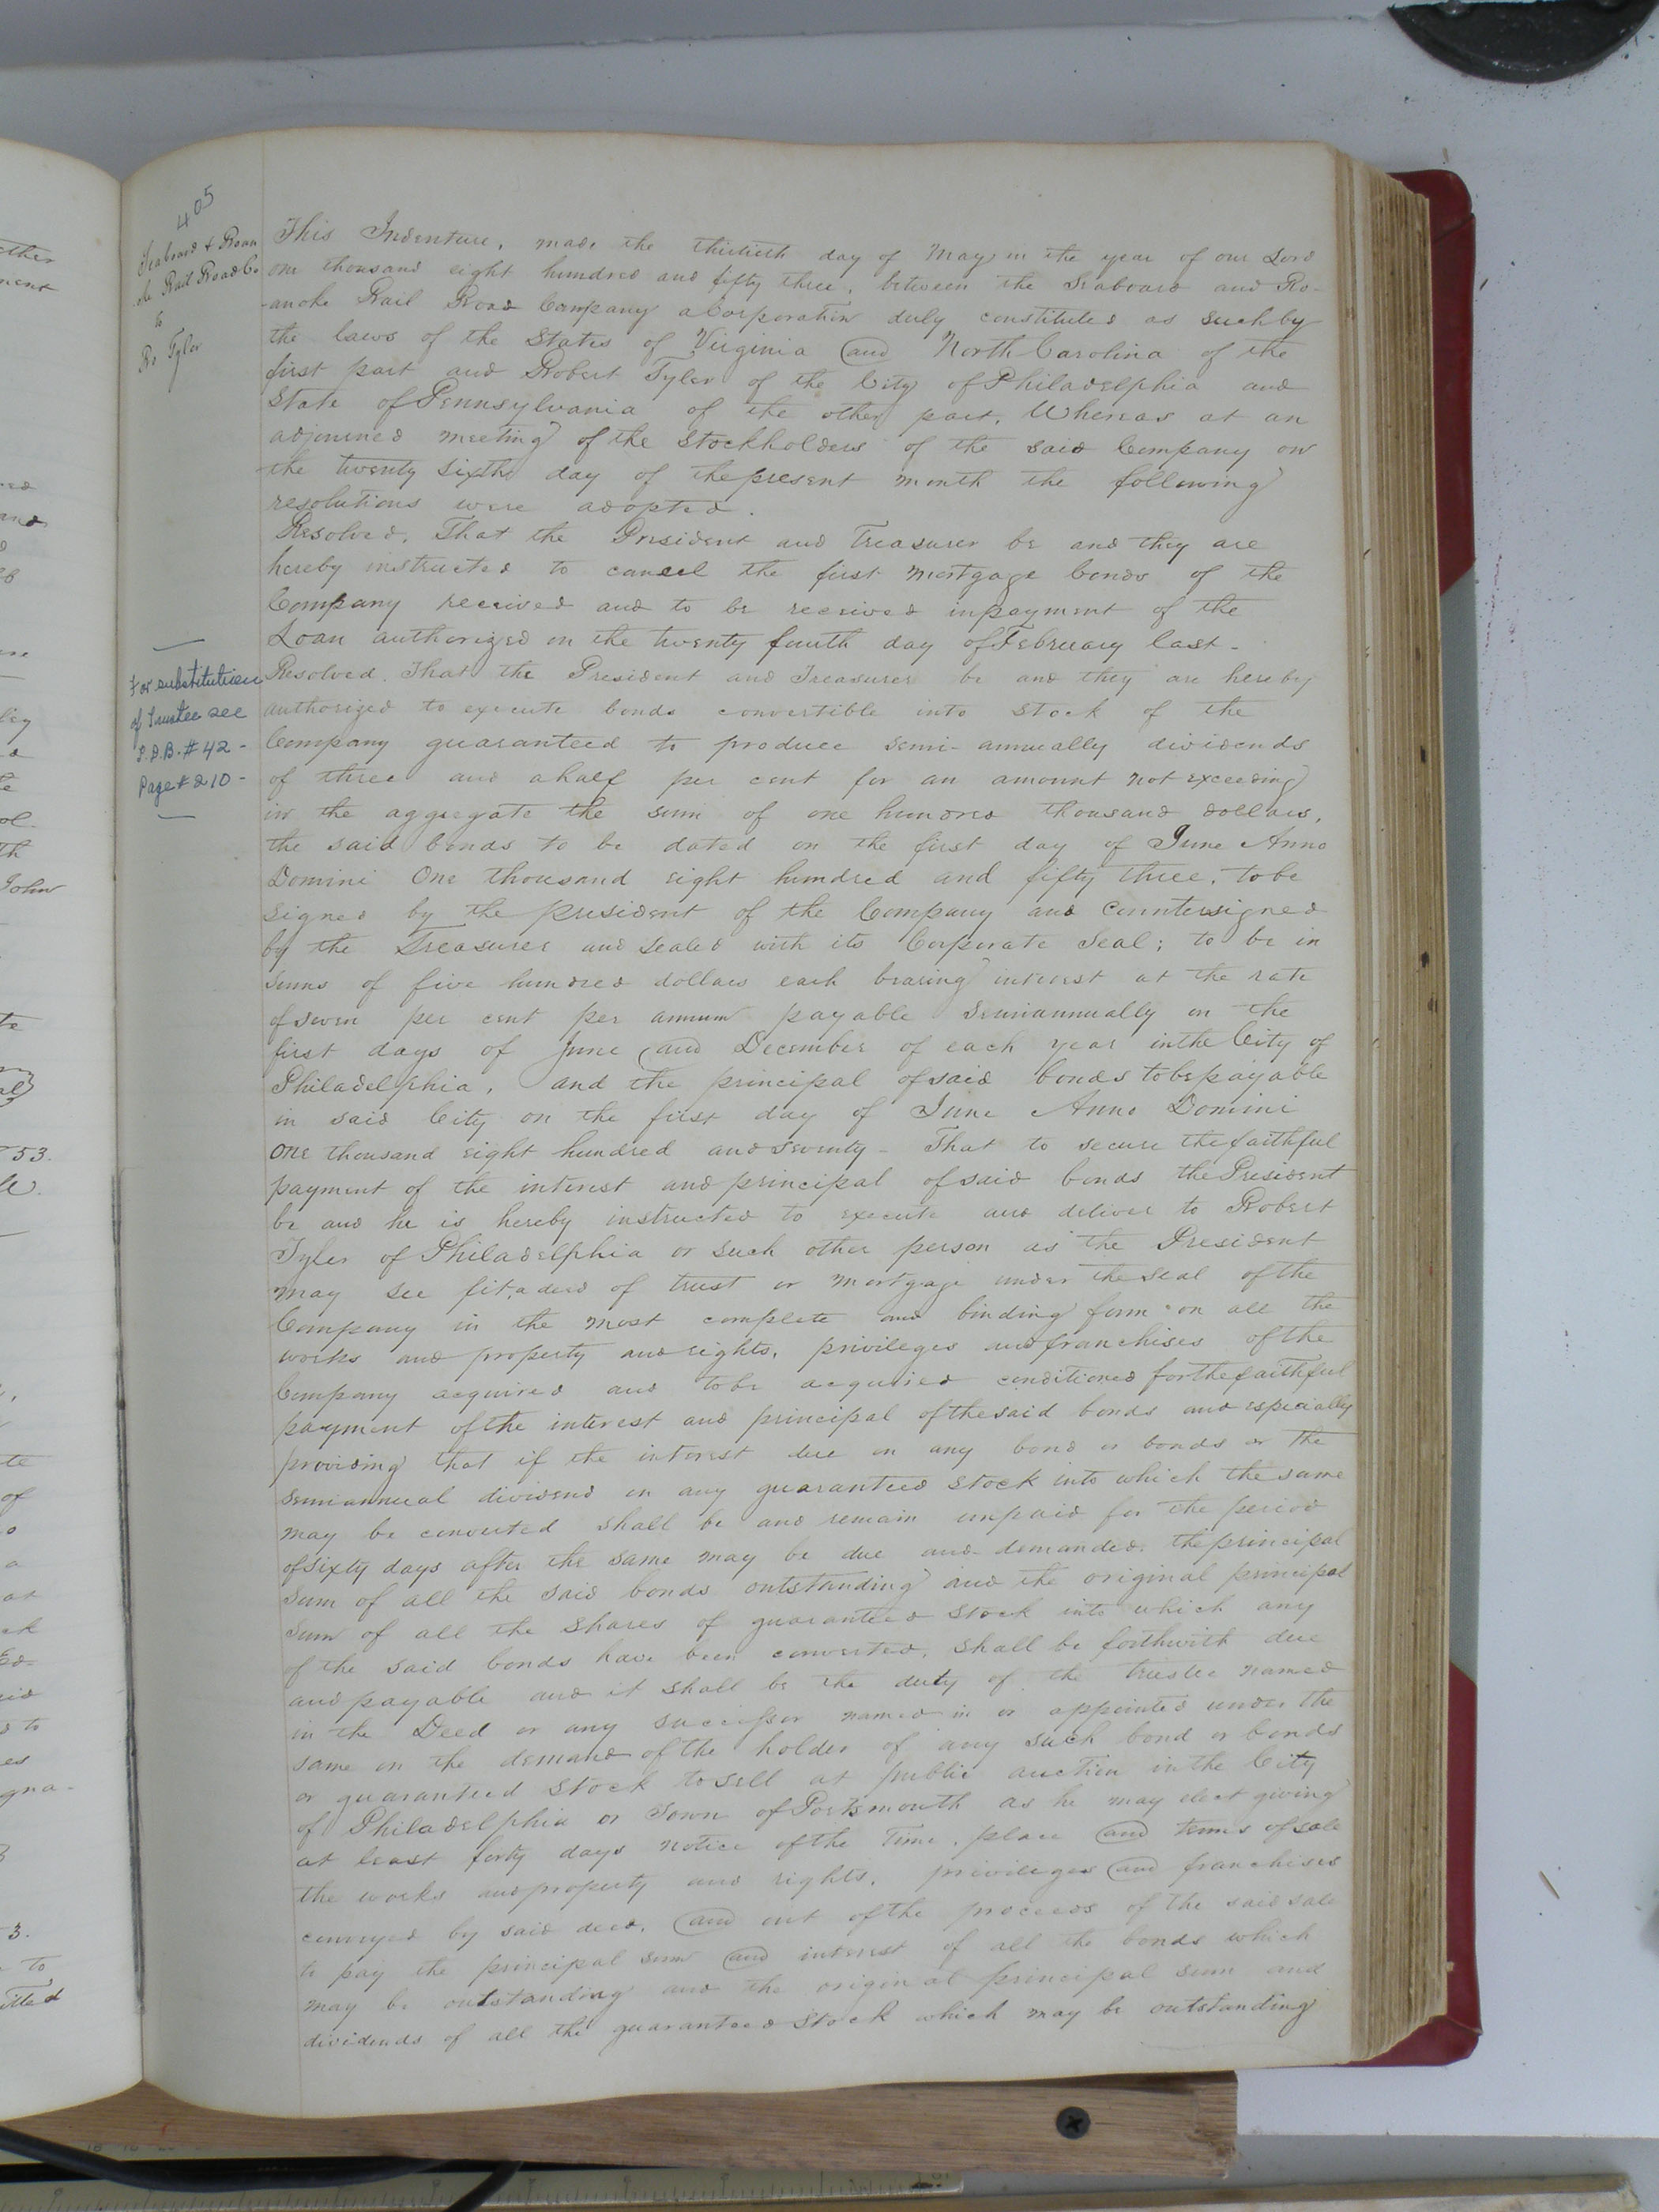 405
Seaboard & Roan
oke Rail Road Co
to
Ro Tyler
This Indenture, made the thirtieth day of May in the year of our Lord
one thousand eight hundred and fifty three, between the Seaboard and Ro-
-anoke Rail Road Company a Corporation duly constituted as such by
the laws of the States of Virginia and North Carolina of the
first part and Robert Tyler of the City of Philadelphia and
State of Pennsylvania of the other part. Whereas at an
adjourned meeting of the Stockholders of the said Company on
the twenty sixth day of the present month the following
resolutions were adopted.
Resolved, That the President and Treasurer be and they are
hereby instructed to cancel the first mortgage bonds of the
Company received and to be received in payment of the
Loan authorized on the twenty fourth day of February last -
Resolved. That the President and Treasurer be and they are hereby
authorized to execute bonds convertible into Stock of the
Company guaranteed to produce semi-annually dividends
of three and a half per cent for an amount not exceeding
in the aggregate the sum of one hundred thousand dollars,
the said bonds to be dated on the first day of June Anno
Domini One thousand eight hundred and fifty three, to be
signed by the president of the Company and Countersigned
by the Treasurer and sealed with its Corporate Seal; to be in
sums of five hundred dollars each bearing interest at the rate
of seven per cent per annum payable semiannually on the
first days of June and December of each year in the City of
Philadelphia, and the principal of said bonds to be payable
in said City on the first day of June Anno Domini
One thousand eight hundred and seventy - That to secure the faithful
payment of the interest and principal of said bonds the President
be and he is hereby instructed to execute and deliver to Robert
Tyler of Philadelphia or such other person as the President
may see fit, a deed of trust or mortgage under the seal of the
Company in the most complete and binding form on all the
works and property and rights, privileges and franchises of the
Company acquired and to be acquired conditioned for the faithful
payment of the interest and principal of the said bonds and especially
providing that if the interest due on any bond or bonds or the
semiannual dividend on any guaranteed Stock into which the same
may be converted shall be and remain unpaid for the period
of sixty days after the same may be due and demanded, the principal
Sum of all the said bonds outstanding and the original principal
Sum of all the Shares of guaranteed Stock into which any
of the said bonds have been converted, shall be forthwith due
and payable and it shall be the duty of the trustee named
in the Deed or any successor named in or appointed under the
same on the demand of the holder of any such bond or bonds
or guaranteed Stock to sell at public auction in the City
of Philadelphia or Town of Portsmouth as he may elect giving
at least forty days notice of the Time, place and terms of sale
the works and property and rights, privileges and franchises
conveyed by said deed, and out of the proceeds of the said sale
to pay the principal sum and interest of all the bonds which
may be outstanding and the original principal sum and
dividends of all the guaranteed Stock which may be outstanding
For substitution
of Trustee see
P.D.B. #42 -
Page # 210 -